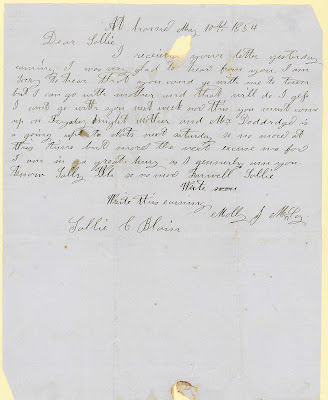 At home May 10th 1854
Dear Sallie
I received your letter yesterday
evening I was very glad to hear from you I am
sory to hear that you and go with me to town
but I can go with mother and that will do I gess
I cant go with you next week nor this you must come
up on Fryday night mother and Mrs Doddridge is
a going up to next saturday so no more at
this time but more the next excuse me for
I am in a great hurry as I generly am you
know Sally so no more Farwell Sallie
Write soon
Write this evening
Molly J
Sallie C Blain